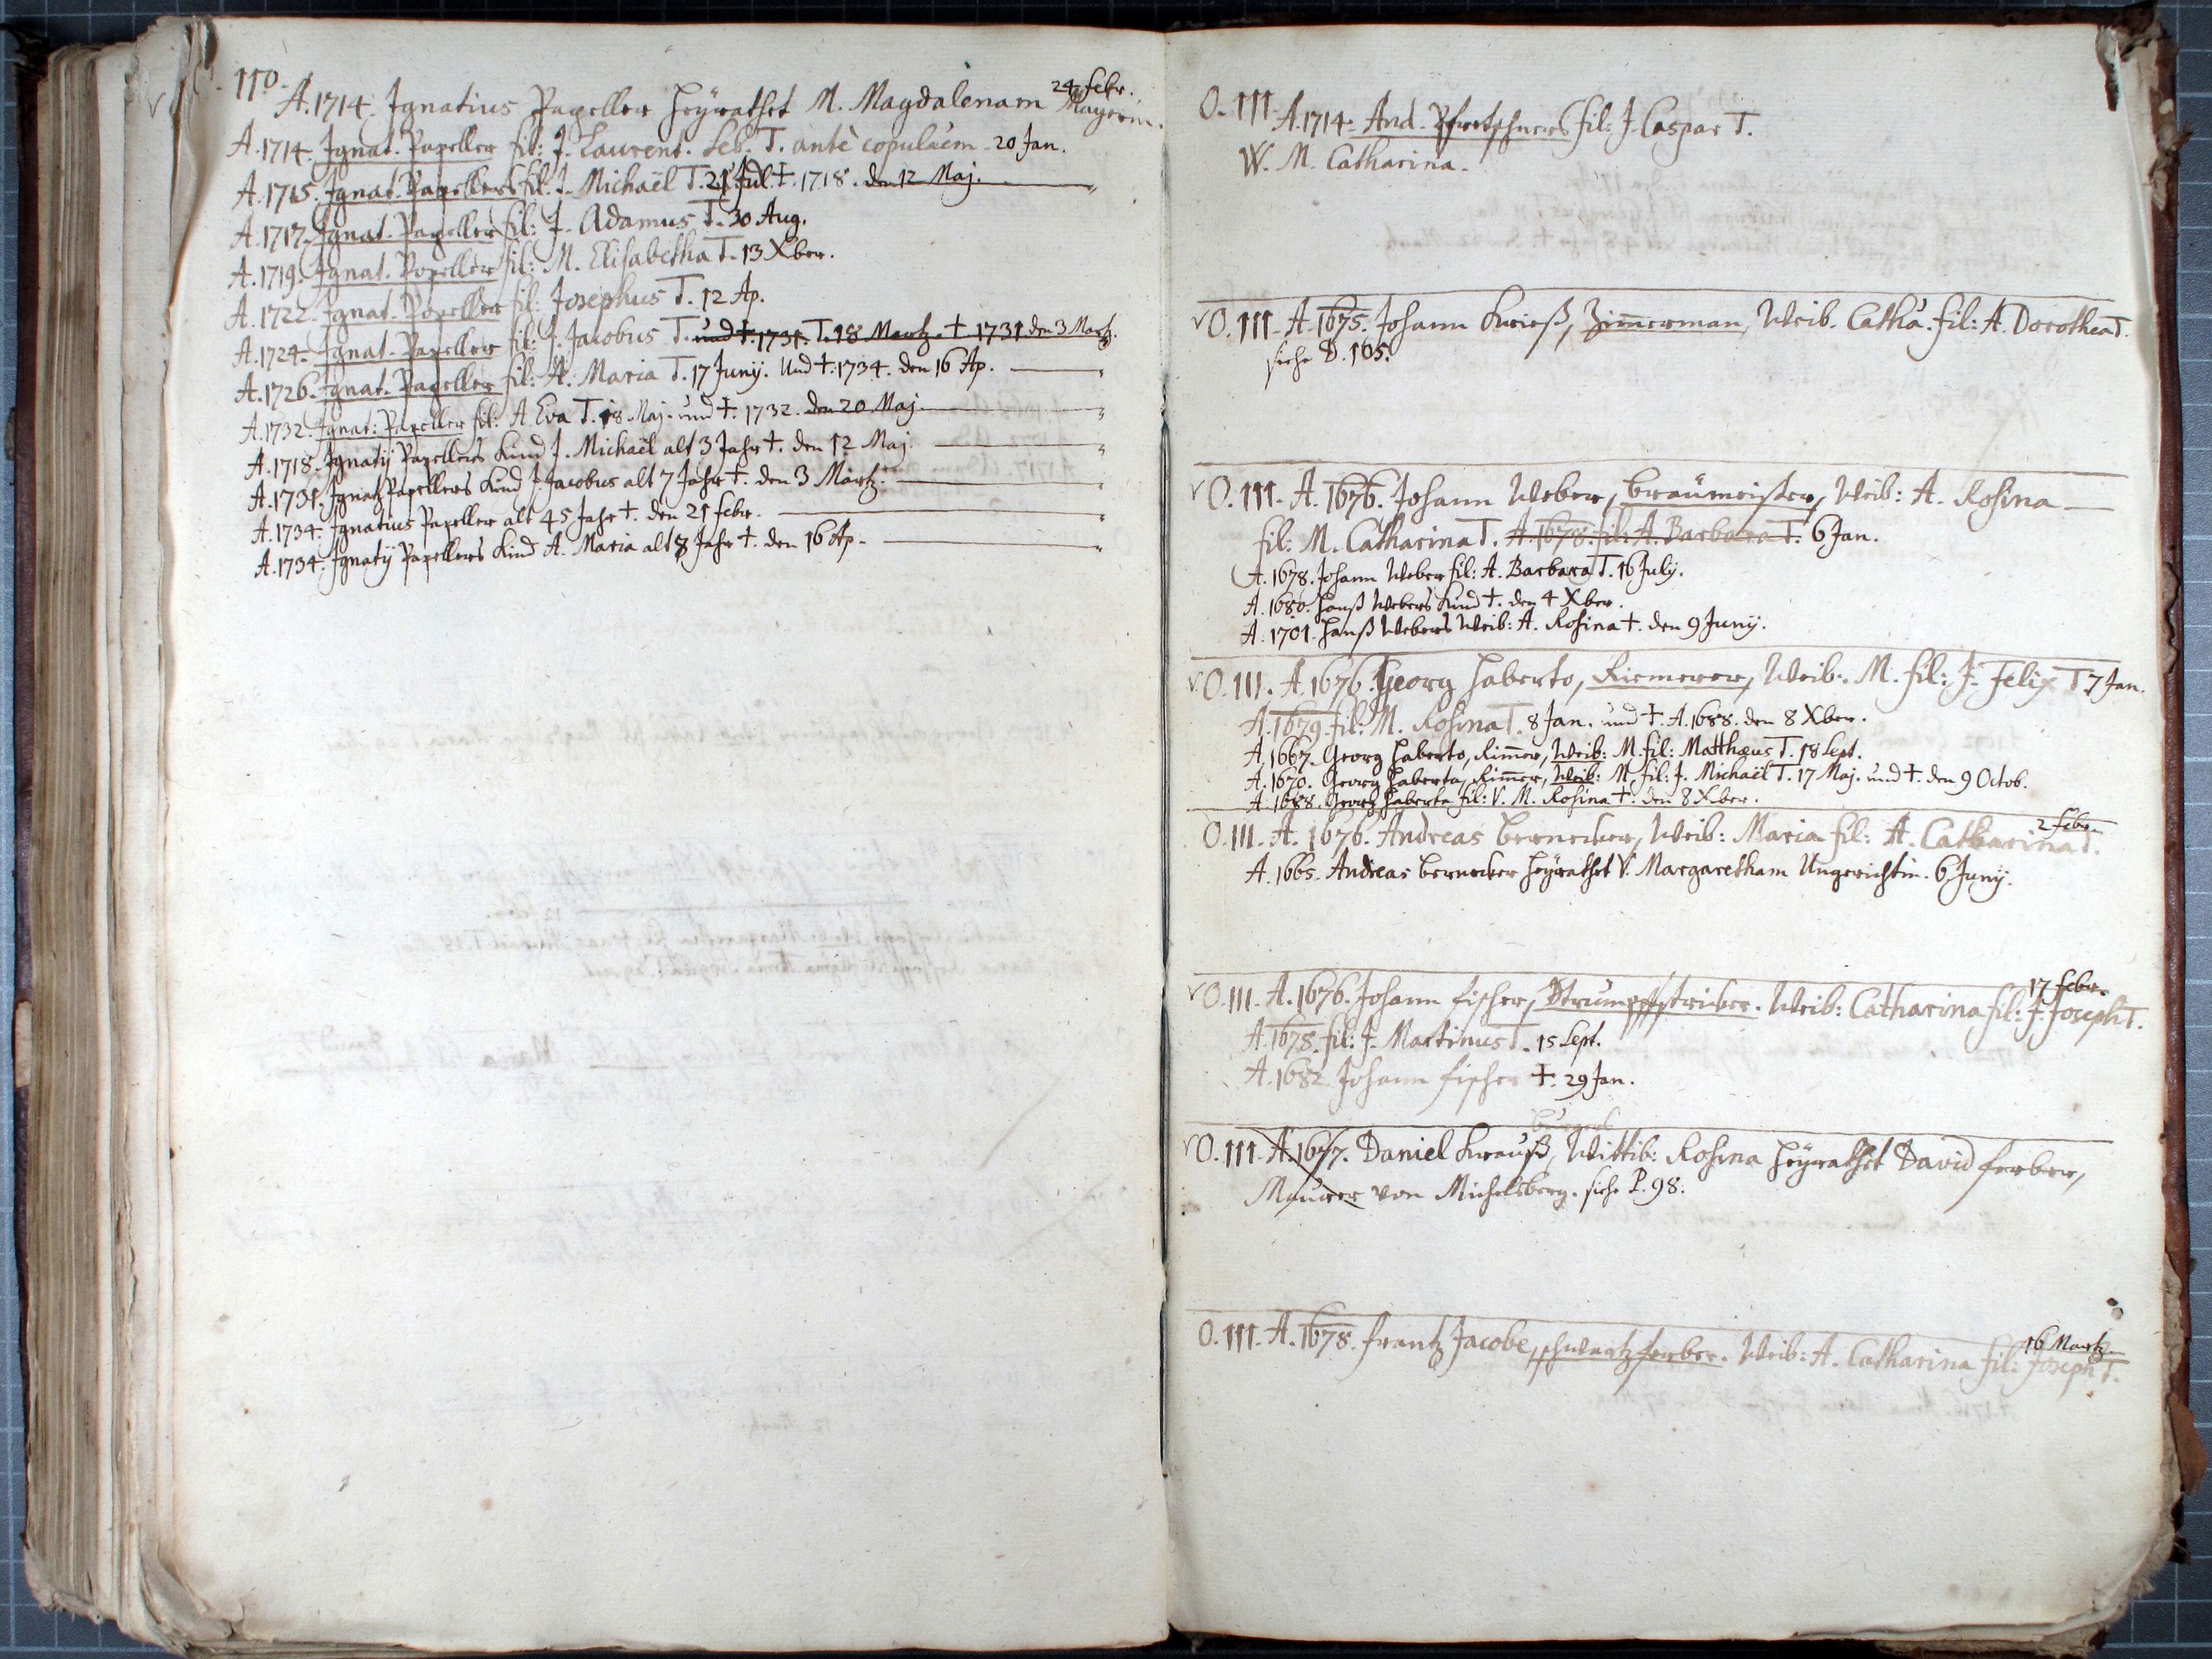 110.
24 febr.
A. 1714. Ignatius Papeller heÿrathet M. Magdalenam Mayrin.
A. 1714. Ignat. Papeller fil: J. Laurent. Seb. T. antè copulaèm. 20 Jan.
A. 1715. Ignat. Papellers fil: J. Michaël T. 21 Jul. †. 1718. den 12 Maj.
A. 1717. Ignat. Papeller fil: J. Adamus T. 30 Aug.
A. 1719. Ignat. Papeller fil: M. Elisabetha T. 13 Xber.
A. 1722. Ignat. Papeller fil: Josephus T. 12 Ap.
A. 1724. Ignat. Papeller fil: J. Jacobus T. und †. 1731. T. 18 Martz. † 1731 den 3 Martz.
A. 1726. Ignat. Papeller fil: A. Maria T. 17 Junÿ. Und †. 1734. den 16 Ap.
A. 1732. Ignat: Papeller fil: A. Eva T. 18 Maj. und †. 1732. den 20 Maj.
A. 1718. Ignatÿ Papellers Kind J. Michaël alt 3 Jahr †. den 12 Maj.
A. 1731. Ignatz Papellers Kind J. Jacobus alt 7 Jahr †. den 3 Martz.
A. 1734. Ignatius Papeller alt 45 Jahr †. den 21 febr.
A. 1734. Ignatÿ Papellers Kind A. Maria alt 8 Jahr †. den 16 Ap.
O. 111. A. 1714. And. Pfretschners fil: J. Caspar T.
W. M. Catharina.
O. 111. A. 1675. Johann Krieß, Zimmerman, Weib. Catha. fil: A. Dorothea T.
siehe D. 105.
O. 111. A. 1676. Johann Weber, breümeister, Weib: A. Rosina
fil: M. Catharina T. A. 1678. fil: A. Barbara T. 6 Jan.
A. 1678. Johann Weber fil: A. Barbara T. 16 Julÿ.
A. 1680. Hanß Webers Kind †. den 4 Xber.
A. 1701. Hanß Webers Weib: A. Rosina †. den 9 Junÿ.
O. 111. A. 1676. Georg Haberto, Riemerer, Weib. M. fil: J. Felix T 7 Jan.
A. 1679. fil: M. Rosina T. 8 Jan. und †. A. 1688. den 8 Xber.
A. 1667. Georg Haberto, Rimmer, Weib: M. fil: Matthæus T. 18 Sept.
A. 1670. Georg Haberto, Rimmer, Weib: M. fil: J. Michaël T. 17 Maj. und †. den 9 Octob.
A. 1688. Georg Haberto fil: V. M. Rosina †. den 8 Xber.
2 febr.
O. 111. A. 1676. Andreas bernecker, Weib: Maria fil: A. Catharina T.
A. 1665. Andreas bernecker heÿrathet V. Margaretham Ungerichtin. 6 Junÿ.
17 febr.
O. 111. A. 1676. Johann fischer, Strumpffstricker. Weib: Catharina fil: J. Joseph T.
A. 1678. fil: J. Martinus T. 15 Sept.
A. 1682. Johann fischer †. 29 Jan.
O. 111. A. 1677. Daniel Krauß, Wittib: Rosina heÿrathet David ferber,
Maurer von Michelsberg. siehe P. 98.
16 Martz.
O. 111. A. 1678. frantz Jacobe, schwartzferber. Weib: A. Catharina fil: Joseph T.